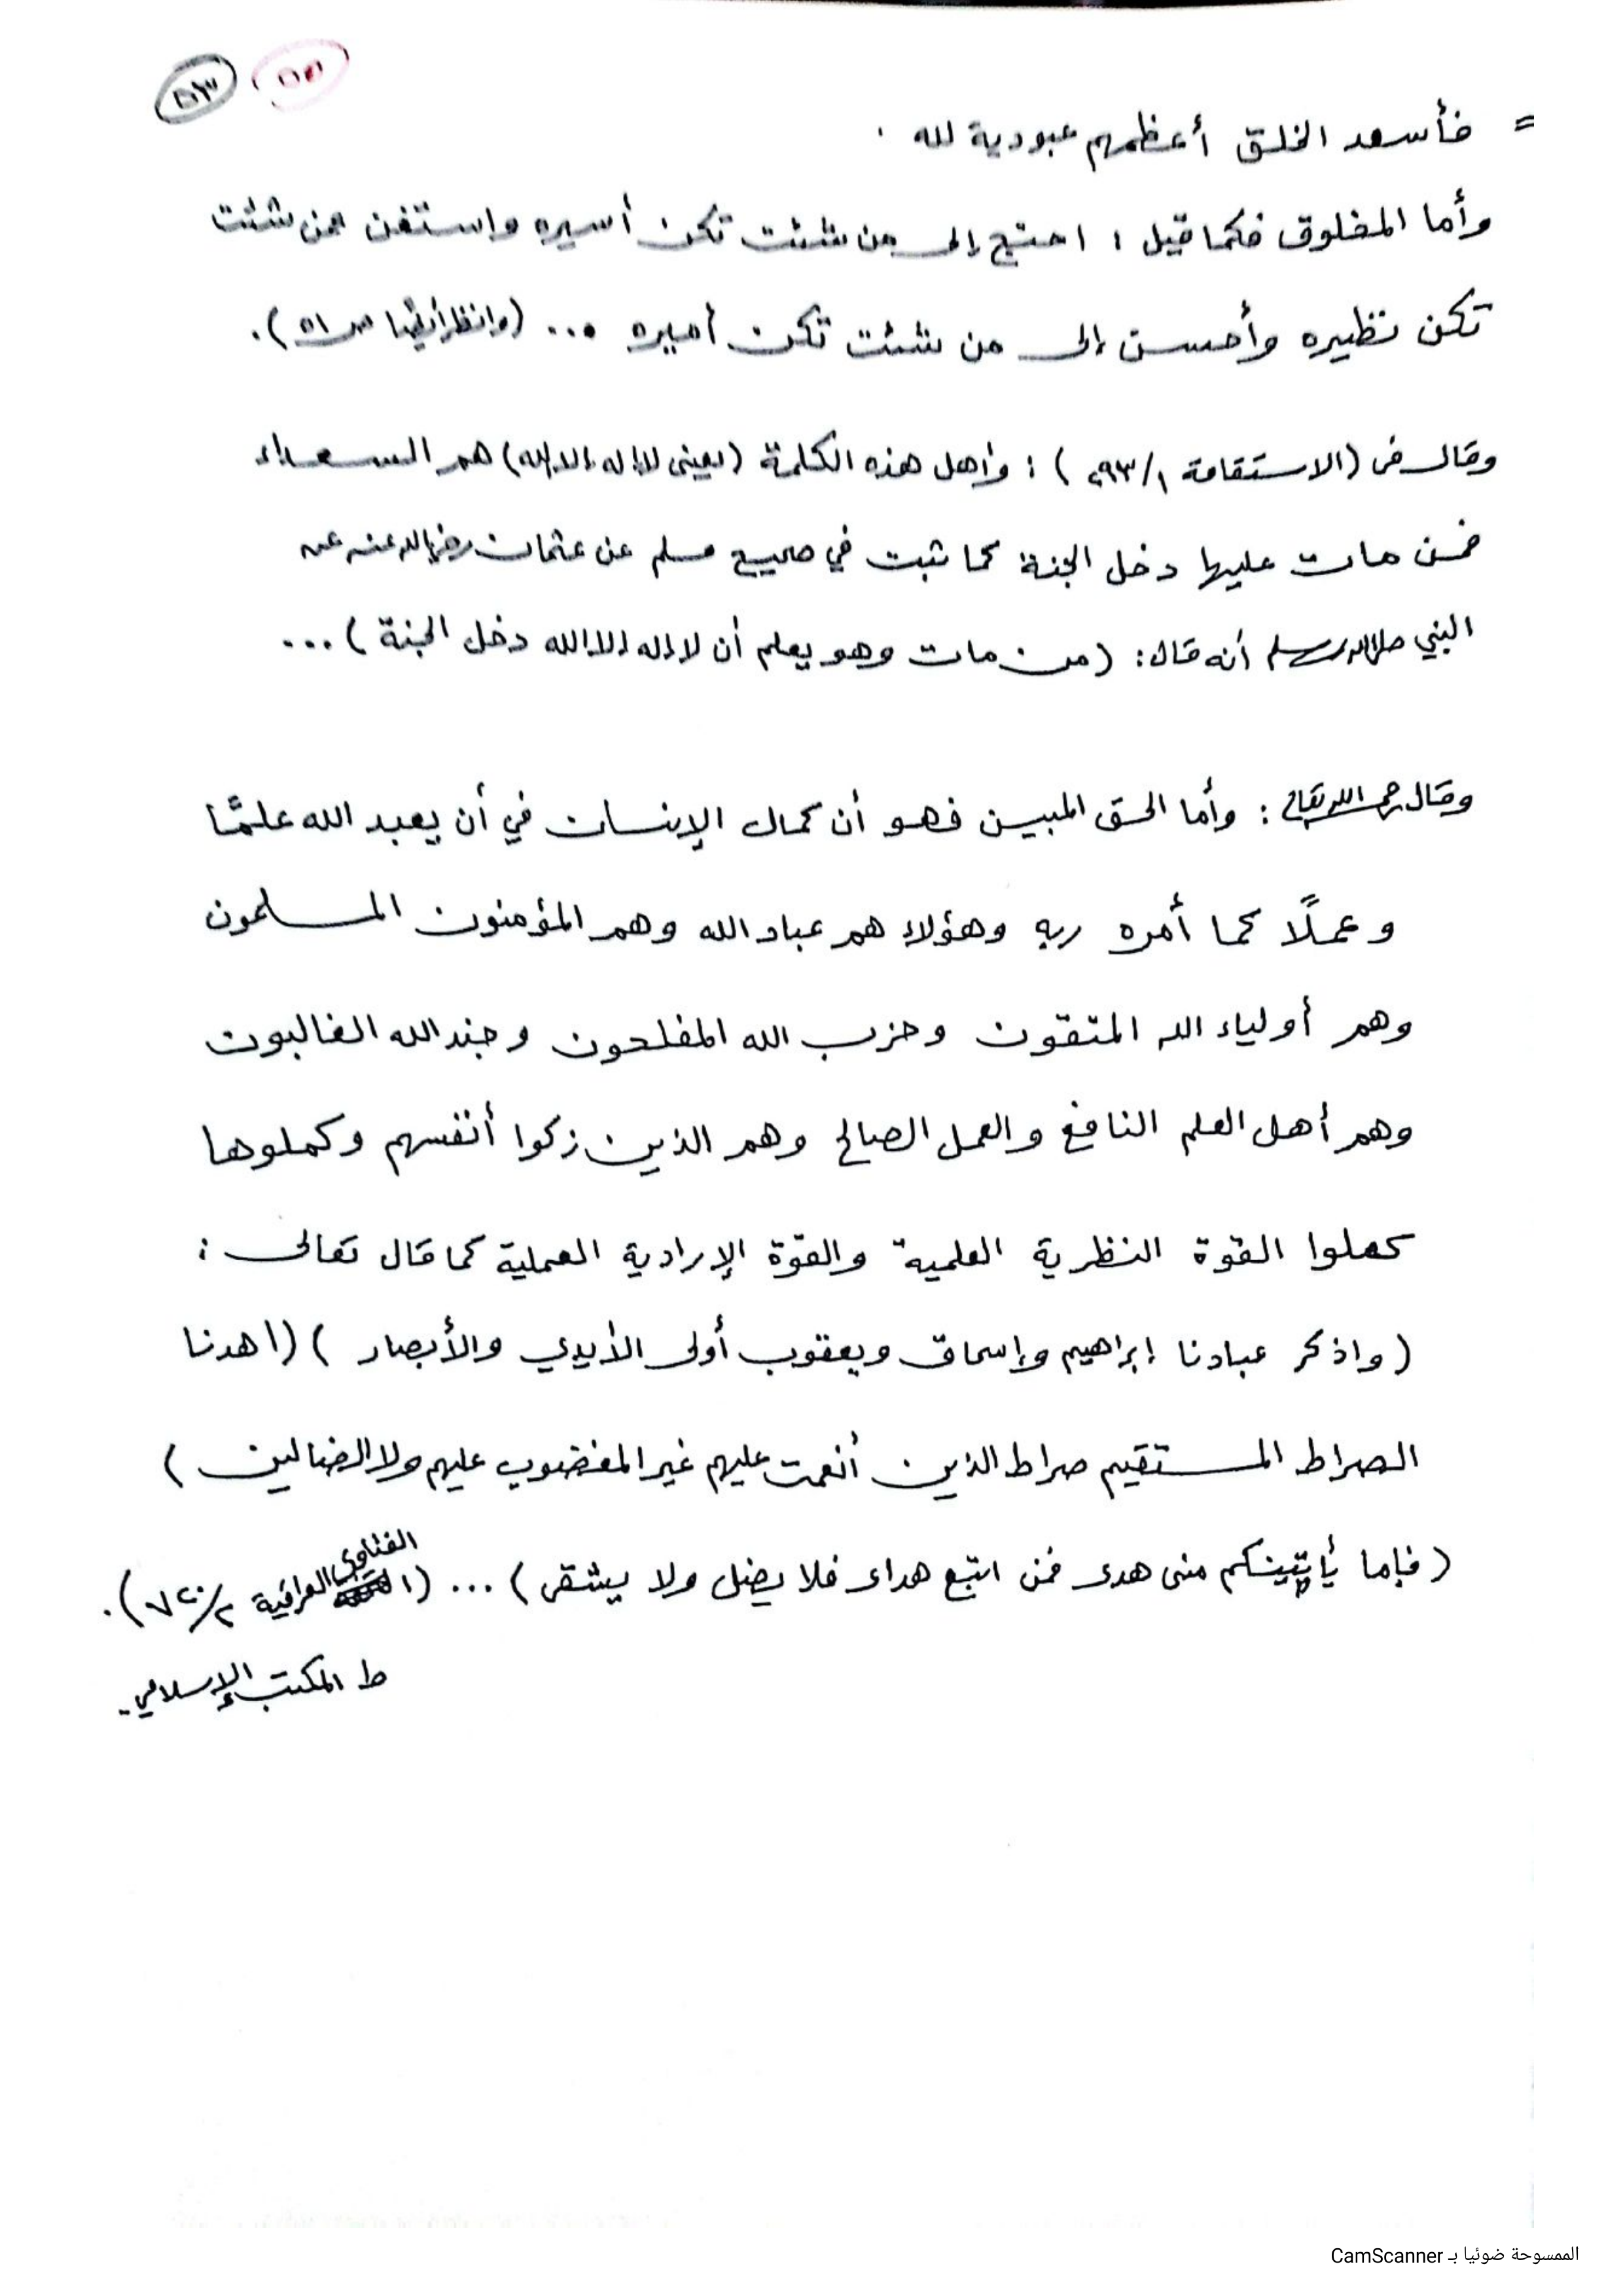 = فأسعد الخلق أعظمهم عبودية لله .
وأما المخلوق فكما قيل : احتج إلى من شئت تكن أسيره واستغن عمن شئت
تكن نظيره وأحسن إلى من شئت تكن أميره ... (وانظر أيضا ص ٥١).
وقال في (الاستقامة ١/ ٢٩٣) : وأهل هذه الكلمة (يعني لا إله إلا الله) هم السعداء
فمن مات عليها دخل الجنة كما ثبت في صحيح مسلم عن عثمان رضي الله عنه عن
النبي صلى الله عليه وسلم أنه قال: (من مات وهو يعلم أن لا إله إلا الله دخل الجنة) ...
وقال رحمه الله تعالى : وأما الحق المبين فهو أن كمال الإنسان في أن يعبد الله علمًا
وعملًا كما أمره ربه وهؤلاء هم عباد الله وهم المؤمنون المسلمون
وهم أولياء الله المتقون وحزب الله المفلحون وجند الله الغالبون
وهم أهل العلم النافع والعمل الصالح وهم الذين زكوا أنفسهم وكملوها
كملوا القوة النظرية العلمية والقوة الإرادية العملية كما قال تعالى :
(واذكر عبادنا إبراهيم وإسحاق ويعقوب أولى الأيدي والأبصار) (اهدنا
الصراط المستقيم صراط الذين أنعمت عليهم غير المغضوب عليهم ولا الضالين)
(فإما يأتينكم منى هدى فمن اتبع هداى فلا يضل ولا يشقى) ... (الفتاوى العراقية ٢/ ٧٢٠).
ط المكتب الإسلامي.
الممسوحة ضوئيا بـ CamScanner